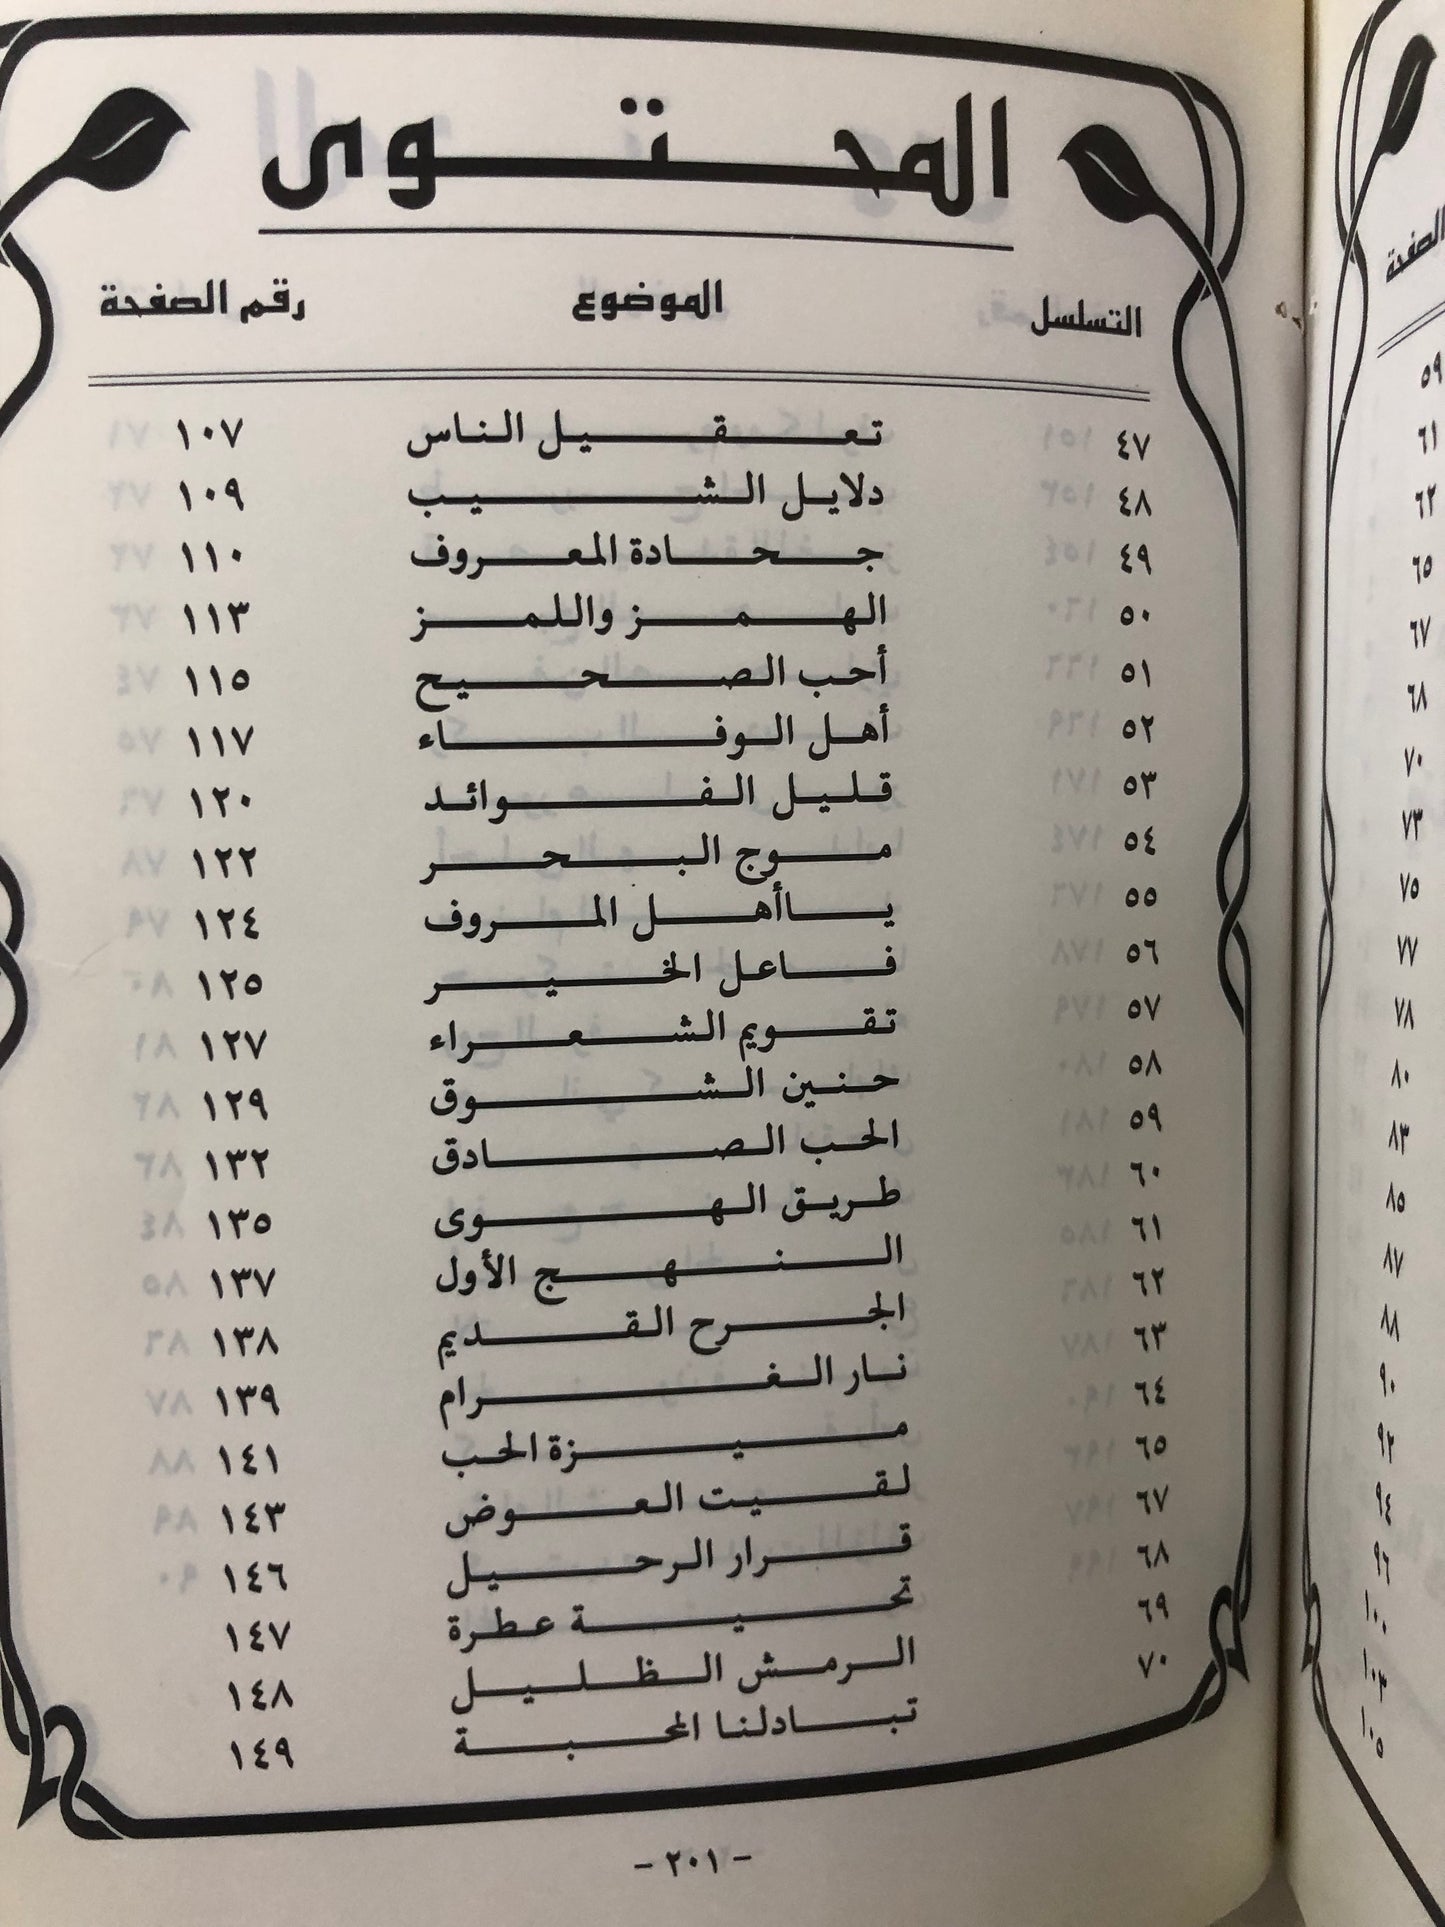 المحتوى
التسلسل الموضوع رقم الصفحة
٤٧ تعقيل الناس ١٠٧
٤٨ دلايل الشيب ١٠٩
٤٩ جحادة المعروف ١١٠
٥٠ الهمز واللمز ١١٣
٥١ أحب الصحيح ١١٥
٥٢ أهل الوفاء ١١٧
٥٣ قليل الفوائد ١٢٠
٥٤ موج البحر ١٢٢
٥٥ ياأهل المروف ١٢٤
٥٦ فاعل الخير ١٢٥
٥٧ تقويم الشعراء ١٢٧
٥٨ حنين الشوق ١٢٩
٥٩ الحب الصادق ١٣٢
٦٠ طريق الهوى ١٣٥
٦١ النهج الأول ١٣٧
٦٢ الجرح القديم ١٣٨
٦٣ نار الغرام ١٣٩
٦٤ ميزة الحب ١٤١
٦٥ لقيت العوض ١٤٣
٦٧ قرار الرحيل ١٤٦
٦٨ تحية عطرة ١٤٧
٦٩ الرمش الظليل ١٤٨
٧٠ تبادلنا المحبة ١٤٩
- ٢٠١ -
الصفحة
٥٩
٦١
٦٢
٦٥
٦٧
٦٨
٧٠
٧٣
٧٥
٧٧
٧٨
٨٠
٨٣
٨٥
٨٧
٨٨
٩٠
٩٢
٩٤
٩٦
١٠٠
١٠٣
١٠٥